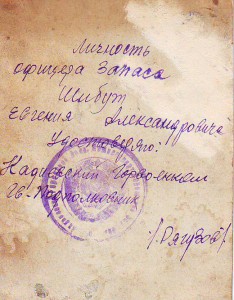 Личность
офицера запаса
Шибут
Евгения Александровича
Удостоверяю:
Горвоенком
Гв. Подполковник